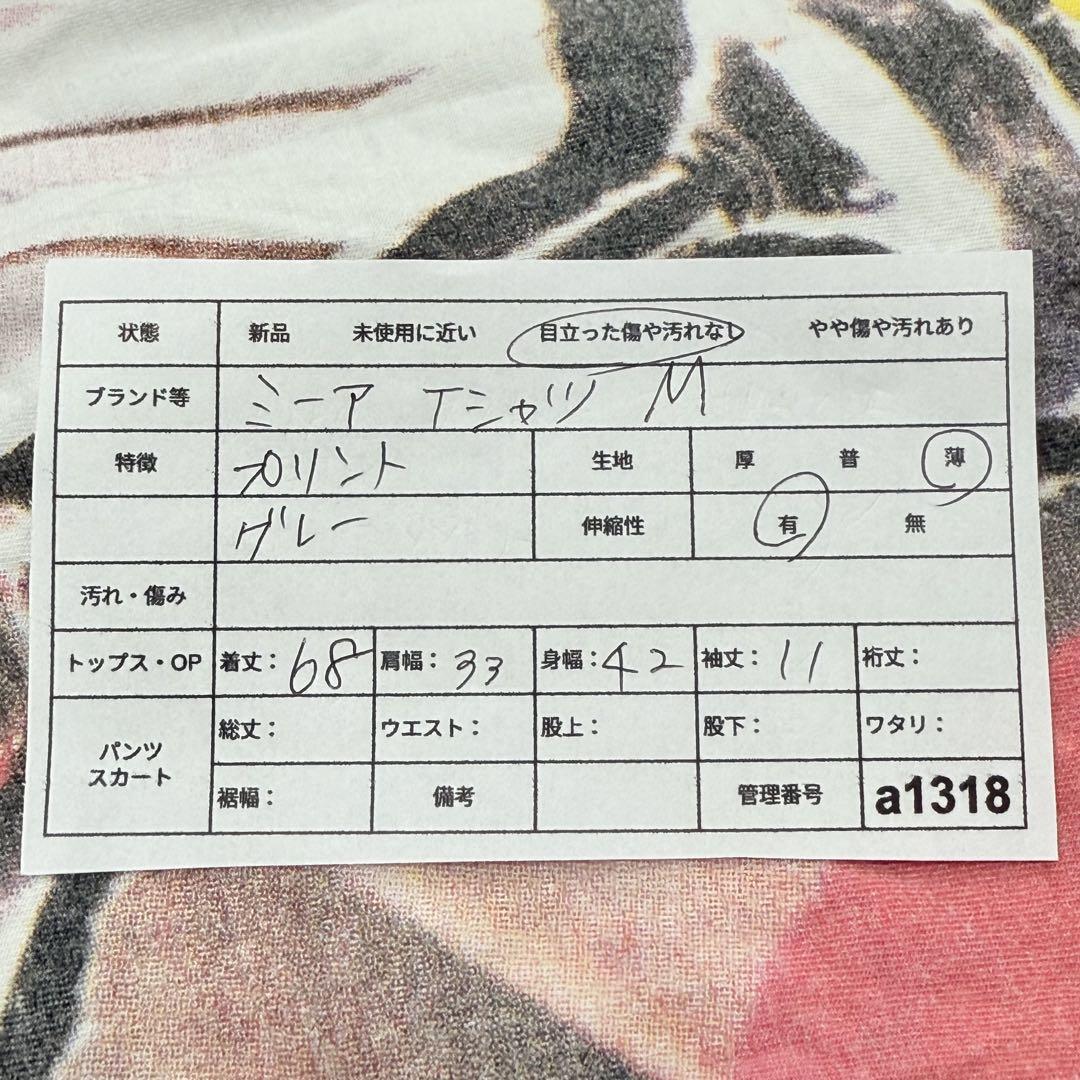 状態 新品 未使用に近い 目立った傷や汚れなし やや傷や汚れあり
ブランド等 ミーア Tシャツ M
特徴 プリント 生地 厚 普 薄
グレー 伸縮性 有 無
汚れ・傷み
トップス・OP 着丈：68 肩幅：33 身幅：42 袖丈：11 裄丈：
パンツ スカート 総丈： ウエスト： 股上： 股下： ワタリ：
裾幅： 備考 管理番号 a1318